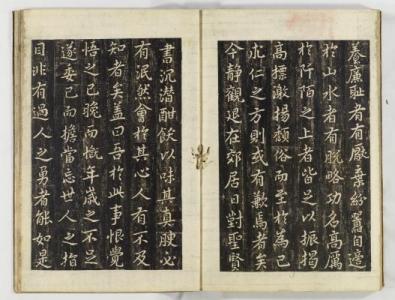 養廉耻者有厭棄紛囂自適
於山水者有脫略功名高厲
於阡陌之上者皆足以振揭
高標激揚頹俗而至於為己
求仁之方則或有歉焉者矣
今靜觀退在郊居日對聖賢
書沉潛酣飫以味其真腴必
有泯然會於其心人有不及
知者矣盖曰吾於此事恨覺
悟之已晚而慨年歲之不足
遂委己而擔當忘世人之指
目非有過人之勇者能如是